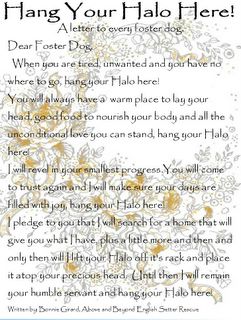 Hang Your Halo Here!
A letter to every foster dog.
Dear Foster Dog,
When you are tired, unwanted and you have
no where to go, hang your Halo here!
You will always have a warm place to lay your
head, good food to nourish your body and all the
unconditional love you can stand, hang your Halo
here!
I will revel in your smallest progress. You will come
to trust again and I will make sure your days are
filled with joy, hang your Halo here!
I pledge to you that I will search for a home that will
give you what I have, plus a little more and then and
only then will I lift your Halo off it's rack and place
it atop your precious head. Until then I will remain
your humble servant and hang your Halo here!
Written by Bonnie Girard, Above and Beyond English Setter Rescue